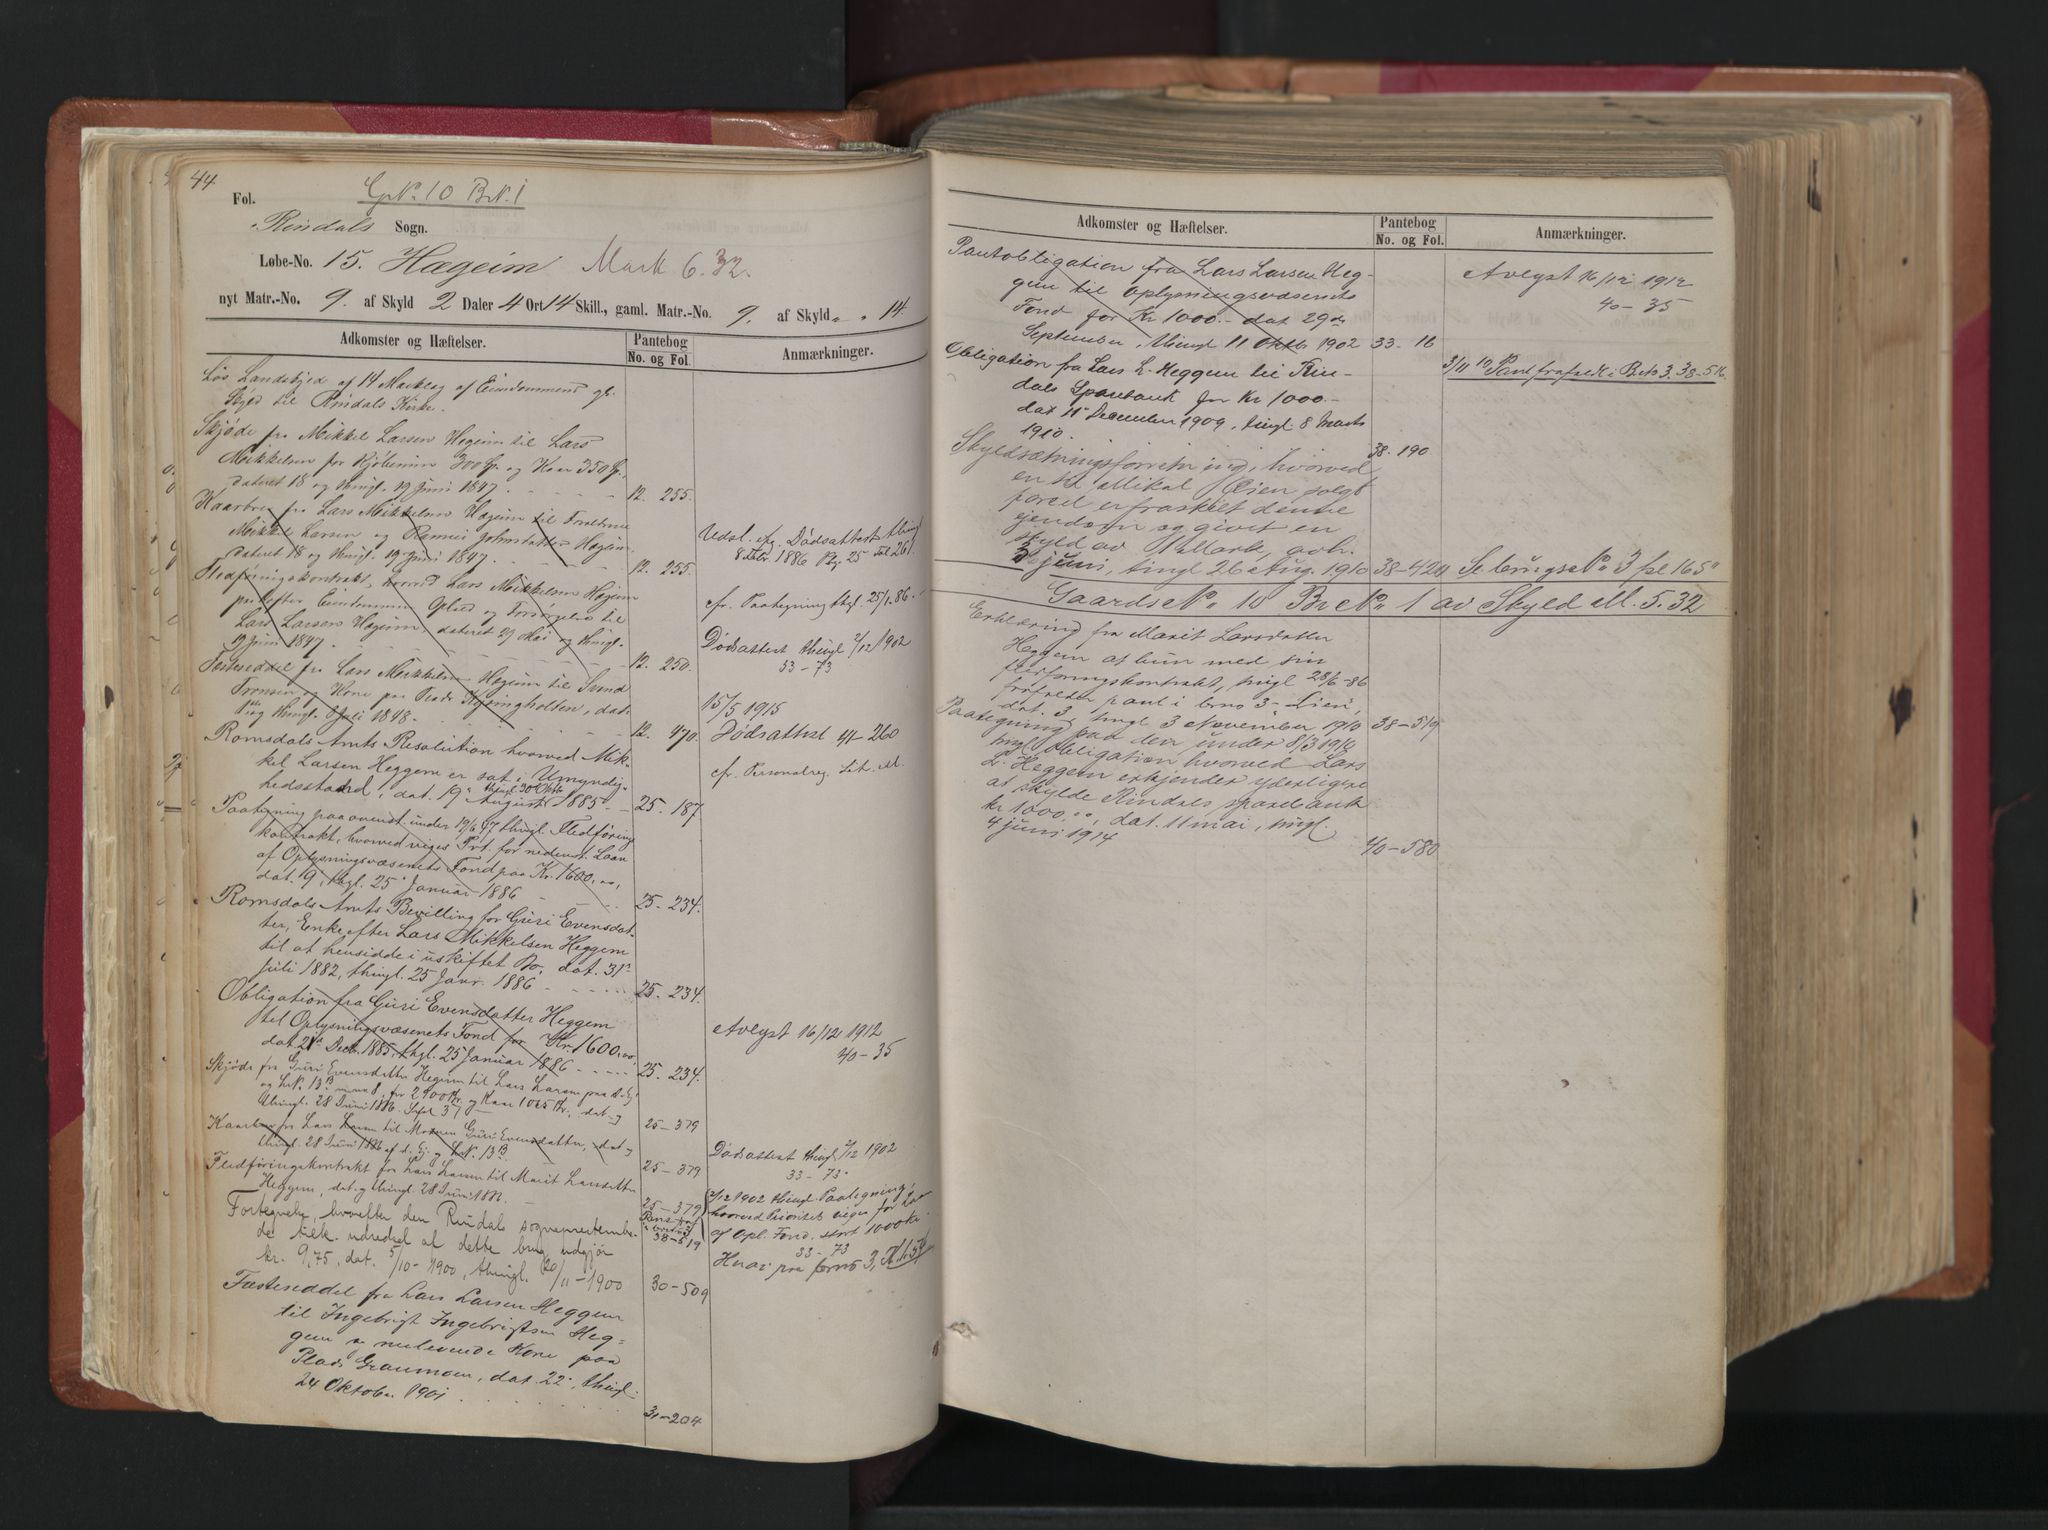 44
Fol.
GNo. 10 BrN. 1
Rindals Sogn.
Løbe-No. 15. Hægeim Mark 6.32.
nyt Matr.-No. 9. af Skyld 2 Daler 4 Ort 14 Skill., gaml. Matr.-No. 9. af Skyld " " 14
Adkomster og Hæftelser.
Pantebog
No. og Fol.
Anmærkninger.
Løs Landskyld af 14 Marklag af Eiendommens gl.
Skyld til Rindals Kirke.
Skjøde fra Mikkel Larsen Hegeim til Lars
Mikkelsen for Kjøbesum 300 Sp. og Kaar 350 Sp.
dateret 18 og thingl. 19 Juni 1847. 12. 255.
Kaarbrev fra Lars Mikkelsen Hægeim til Forældrene
Mikkel Larsen og Johnsdatter Hægeim
dateret 18 og thingl. 19 Juni 1847. 12. 255.
Udsl. efg. Dødsattest thingl.
8 Febr. 1886 Pg. 25 Fol 261.
Fledføringskontrakt, hvorved Lars Mikkelsen Hægeim
Eiendommen og Forsørgelse til
Lars Larsen Hægeim, dateret 29 Mai og thingl.
19 Juni 1847. 12. 250.
cfr. Paategning thgl. 25/1.86.
Dødsattest thingl 2/12 1902
33-73
Fæsteseddel fra Lars Mikkelsen Hægeim til Svend
Trønsen og Kone paa Plads Kysingholten, dat.
og thingl. 8 Juli 1848. 12. 470.
15/5 1915
Dødsattest 41-260
Romsdals Amts Resolution hvorved Mik-
kel Larsen Heggem er sat i Umyndig-
hedsstand, dat. 19 August thingl 30 Oktb 1885. 25. 187
cfr. Personalreg. Lit. M.
Paategning paa ovenst. under 19/6 47 thingl. Fledføring
kontrakt, hvorved viges Prt. for nedenst. Laan
af Oplysningsvæsenets Fond paa Kr. 1600,00,
dat. 9, thgl. 25 Januar 1886 25. 234.
Romsdals Amts Bevilling for Guri Evensdat-
ter, Enke efter Lars Mikkelsen Heggem
til at hensidde i uskiftet Bo, dat. 31te
Juli 1882, thingl. 25 Janr. 1886 25. 234.
Obligation fra Guri Evensdatter Heggem
til Oplysningsvæsenets Fond for Kr. 1600,00,
dat. 21de Decb. 1885, thgl. 25 Januar 1886 25. 234.
Avlyst 16/12 1912
40-35
Skjøde fra Guri Evensdatter Hegeim til Lars Larsen paa d. Ej.
og L.N. 13B for 2400 Kr. og Kaar 1065 Kr., dat. og
thingl. 28 Juni 1886. 25-379
Kaarbrev fra Lars Larsen til Moderen Guri Evensdatter, dat. og
thingl. 28 Juni 1886 af d. Ej. og L.N. 13B. 25-379
Dødsattest thingl 2/12 1902
33-73
Fledføringskontrakt fra Lars Larsen til Marit Larsdatter
Heggem, dat. og thingl. 28 Juni 1886. 25-379
38-519
2/12 1902 thingl. Paategning,
hvorved Prioritet viges for Laan
af Opl. Fond, stort 1000 kr.
33-73
Fortegnelse, hvorefter den Rindals sognepræstembe-
de tilk. udredsel af dette brug udgjør
kr. 9,75, dat. 5/10-1900, thingl. 20/11-1900 30-509
Fæsteseddel fra Lars Larsen Heggem
til Ingebrigt Ingebrigtsen Heg-
gem og nulevende Kone paa
Plads Graumoen, dat. 22, thingl.
24 Oktober 1901 31-204
Adkomster og Hæftelser.
Pantebog
No. og Fol.
Anmærkninger.
Pantobligation fra Lars Larsen Heg-
gem til Oplysningsvæsenets
Fond for Kr 1000.- dat 29de
September, thingl 11 Oktb 1902 33-16
Avlyst 16/12 1912
40-35
Obligation fra Lars L. Heggem til Rin-
dals Sparebank for Kr 1000.-
dat 11 December 1909, thingl 8 Marts
1910. 38-190
3/11 10 Pantefrafald i Br.no 3. 38-516
Skyldsætningsforretning, hvorved
en til Mikal Øien solgt
parcel er fraskilt denne
eiendom og givet en
skyld av Mark, avh.
juni, tingl 26 Aug. 1910 38-424 Se brugs No 3 fol 165"
Gaards No 10 Br No 1 av Skyld M. 5.32
Erklæring fra Marit Larsdatter
Heggem at hun med sin
fledføringskontrakt, tingl 28/6-86
frafalder pant i brno 3 "Lien",
dat. 3, tingl 3 November 1910 38-519
Paategning paa den under 8/3 1910
tingl obligation hvorved Lars
L. Heggem erkjender yderligere
at skylde Rindals sparebank
kr 1000,00, dat. 11 mai, tingl.
4 juni 1914 40-580